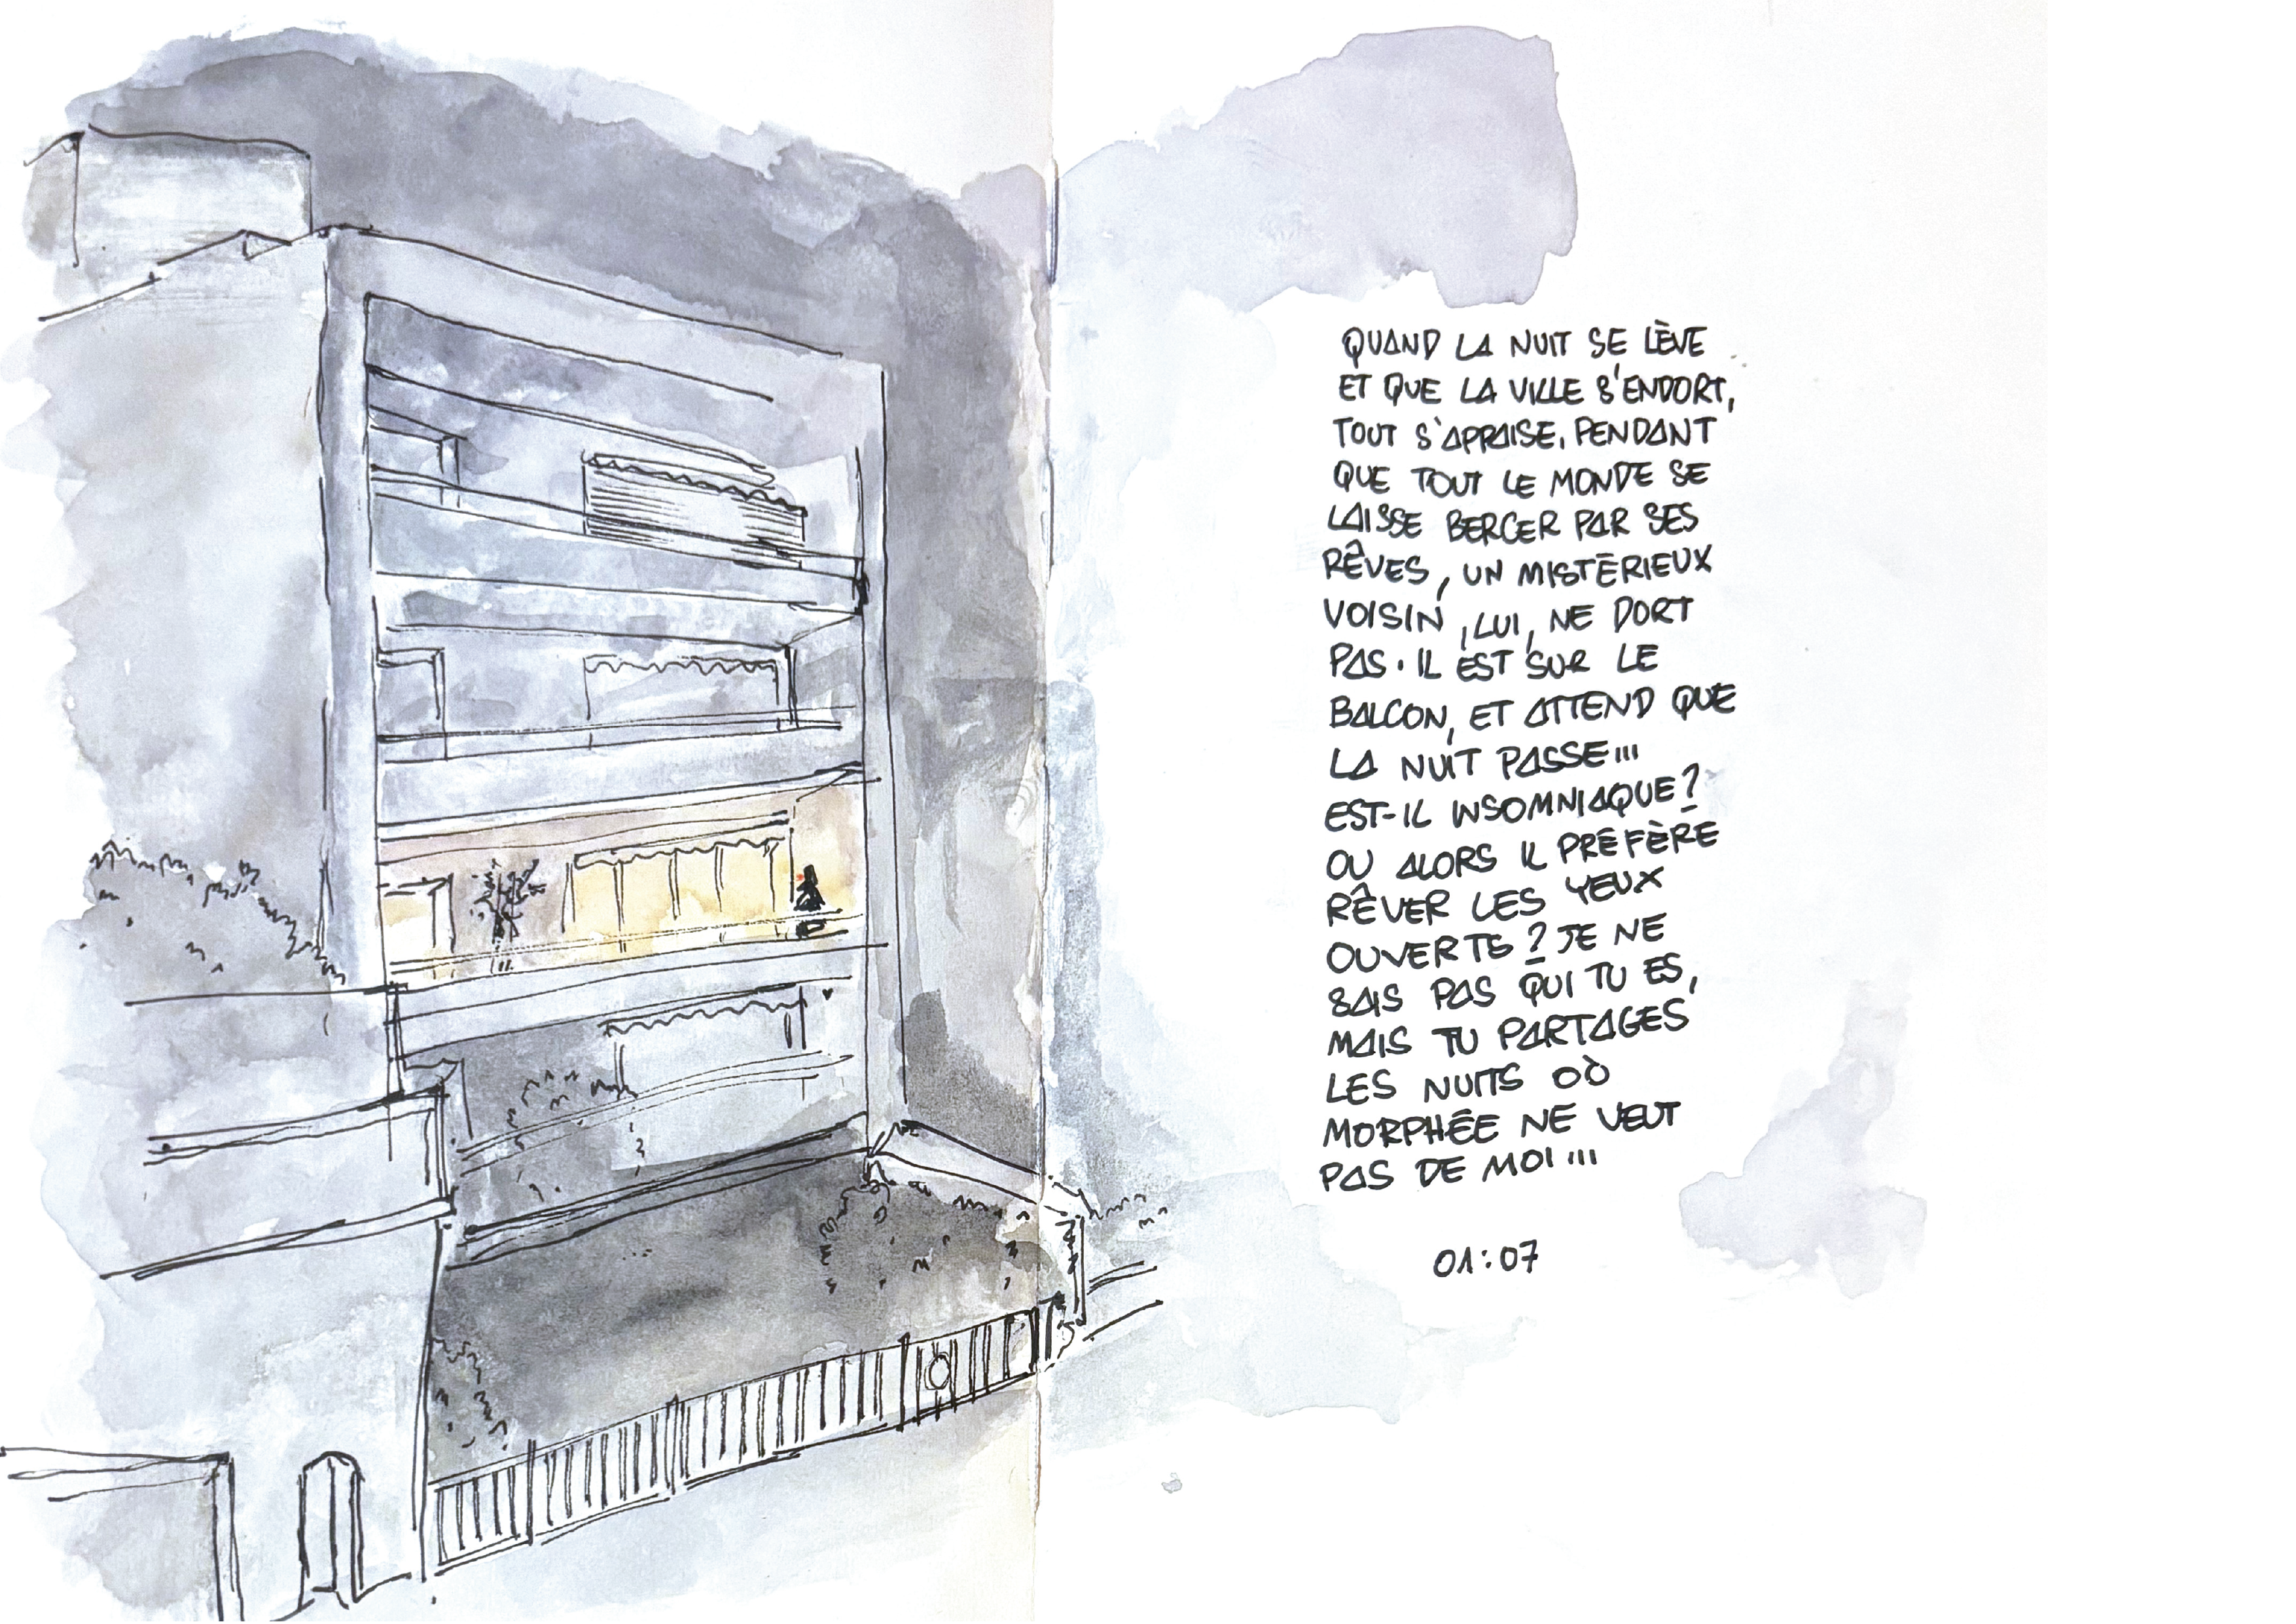 QUAND LA NUIT SE LÈVE
ET QUE LA VILLE S'ENDORT,
TOUT S'APPAISE. PENDANT
QUE TOUT LE MONDE SE
LAISSE BERCER PAR SES
RÊVES, UN MISTÉRIEUX
VOISIN, LUI, NE DORT
PAS. IL EST SUR LE
BALCON, ET ATTEND QUE
LA NUIT PASSE...
EST-IL INSOMNIAQUE?
OU ALORS IL PRÉFÈRE
RÊVER LES YEUX
OUVERTS? JE NE
SAIS PAS QUI TU ES,
MAIS TU PARTAGES
LES NUITS OÙ
MORPHÉE NE VEUT
PAS DE MOI...
01:07